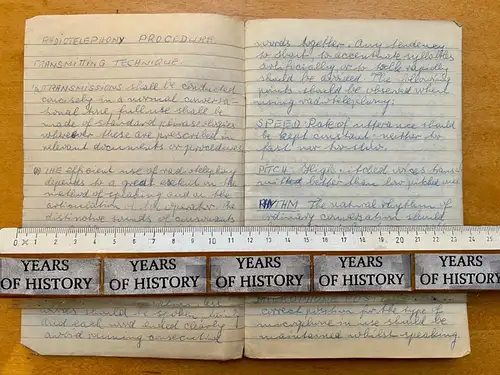 RADIOTELEPHONY PROCEDURE
TRANSMITTING TECHNIQUE.
TRANSMISSIONS shall be conducted
concisely in a normal conversa-
tional tone, full use shall be
made of standard phraseologies
whenever these are prescribed in
relevant documents or procedures
THE efficient use of radiotelephony
depends to a great extent on the
method of speaking and on the
articulation
distinctive sounds of consonants
words should be spoken
and each word ended clearly
word running consecutive
words together. Any tendency
to shout, to accentuate syllables
artificially, or to talk rapidly
should be avoided. The following
points should be observed when
using radiotelephony:
SPEED Rate of utterance should
be kept constant neither too
fast nor too slow.
PITCH High pitched voices trans-
mitted better than low pitched ones
RHYTHM The natural rhythm of
ordinary conversation should
0 1 2 3 4 5 6 7 8 9 10 11 12 13 14 15 16 17 18 19 20 21 22 23 24 25
YEARS OF HISTORY
YEARS OF HISTORY
YEARS OF HISTORY
YEARS OF HISTORY
YEARS OF HISTORY
correct position for the type of
microphone in use should be
maintained whilst speaking.